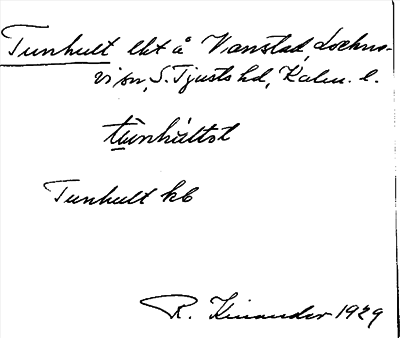 Tunhult lht å Vanstad, Lockne-
vi sn, S. Tjusts hd, Kalm. l.
tùnhúltst
Tunhult kb
R. Kinander 1929